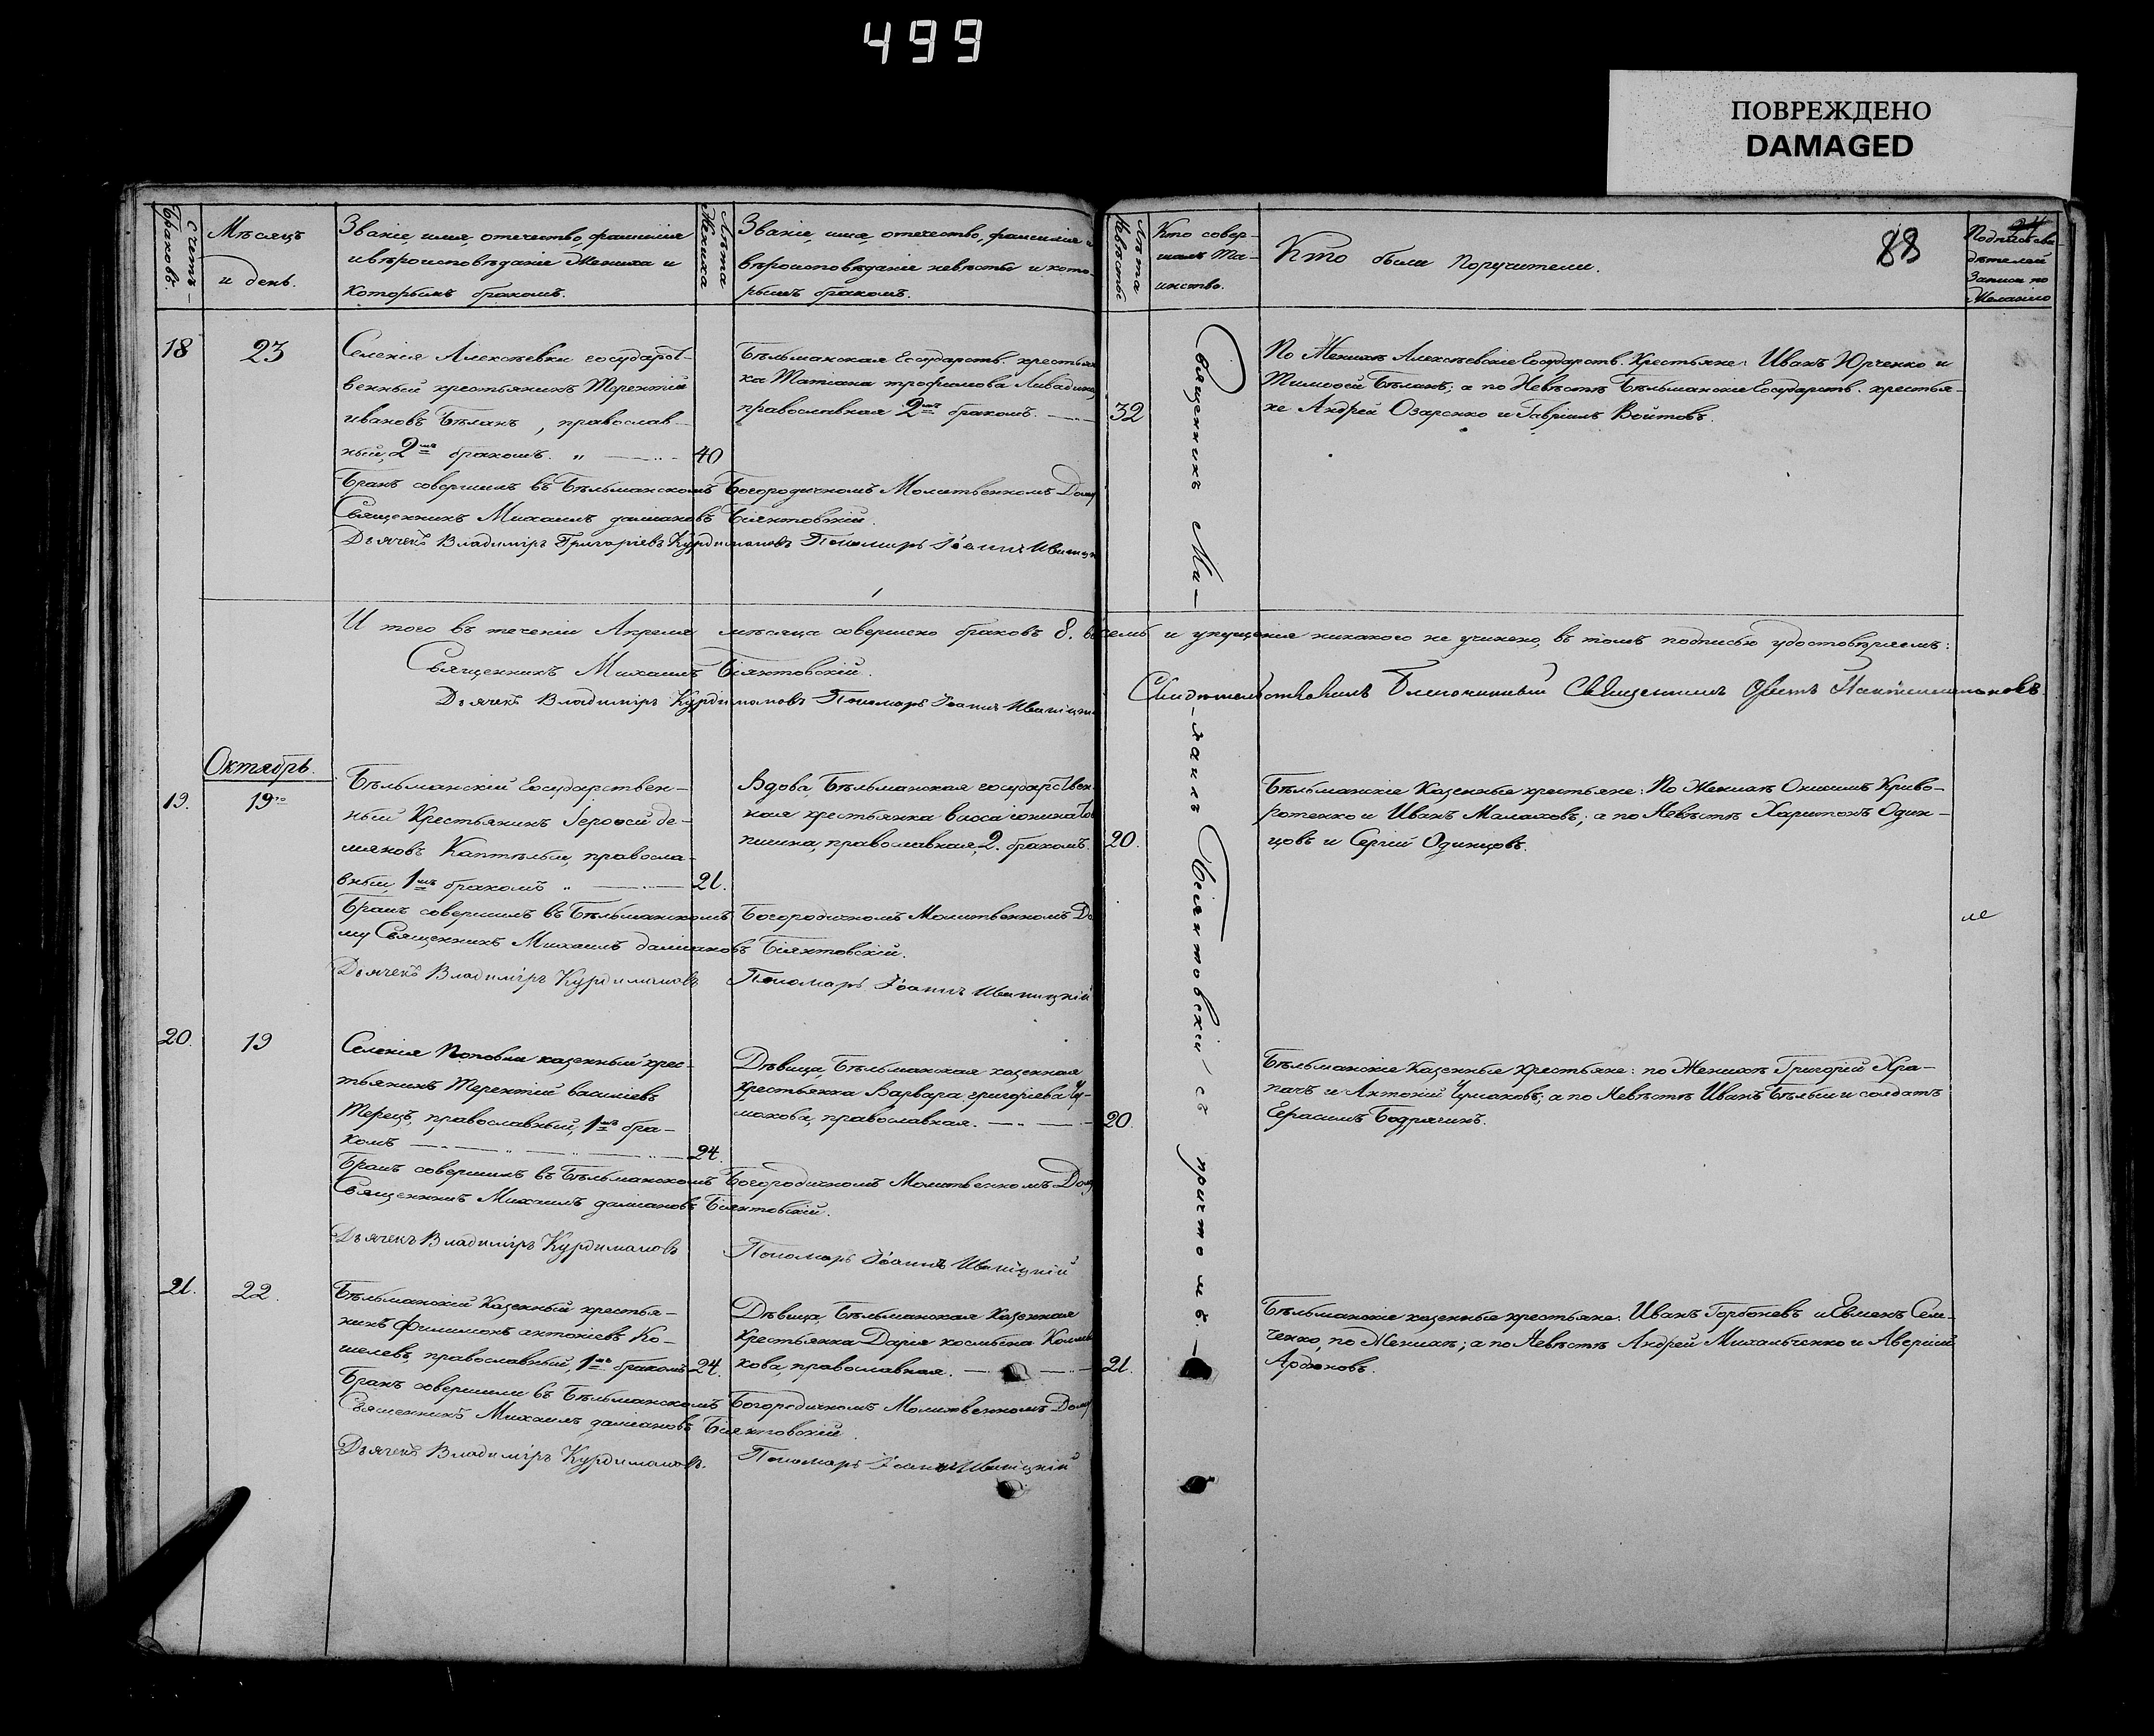 499
ПОВРЕЖДЕНО
DAMAGED
Счетъ браковъ.
Мѣсяцъ
и день.
Званіе, имя, отечество, фамилія
и вѣроисповѣданіе Жениха и
которымъ бракомъ.
Лѣта Жениха
Званіе, имя, отечество, фамилія и
вѣроисповѣданіе невѣсты и кото-
рымъ бракомъ.
Лѣта Невѣсты
Кто совер-
шалъ Та-
инство.
Кто были Поручители.
88
24
Подпись сви-
дѣтелей
Записи по
Желанію
18
23
Селенія Алексѣевки государст-
венный крестьянинъ Терентій
ивановъ Бѣланъ, православ-
ный, 2мъ бракомъ. „
40
Бѣльманская Государств. крестьян
ка Татіана трофимова
православная 2мъ бракомъ.
32
По Женихѣ Алексѣевскіе Государств. Крестьяне: Иванъ Юрченко и
Тимоѳей Бѣланъ; а по Невѣстѣ Бѣльманскіе Государств. крестья-
не Андрей Озаренко и Гавріилъ Войтовъ.
Бракъ совершилъ въ Бѣльманскомъ Богородичномъ Молитвенномъ Дому
Священникъ Михаилъ даміановъ Біянтовскій.
Дьячекъ Владиміръ Григоріевъ Курдимановъ Пономарь Іоаннъ
Священникъ Ми-
-хаилъ Біянтовскій съ причтомъ.
И того въ теченіи Апреля мѣсяца совершено браковъ 8. восемь и упущенія никакого не учинено, въ томъ подписью удостовѣряемъ:
Священникъ Михаилъ Біянтовскій.
Дьячекъ Владиміръ Курдимановъ Пономарь Іоаннъ
Свидѣтельствовалъ Благочинный Священникъ
Октябрь.
19.
19го
Бѣльманскій Государствен-
ный Крестьянинъ Іероѳей де-
мяновъ Каптѣлый, правосла-
вный, 1мъ бракомъ „
21.
Вдова, Бѣльманская государствен
ная крестьянка Васса іонина
пшина, православная, 2. бракомъ.
20.
Бѣльманскіе Казенные крестьяне: По Женихѣ Онисимъ Криво-
ротенко и Иванъ Малаховъ; а по Невѣстѣ Харитонъ Один-
цовъ и Сергій Одинцовъ.
Бракъ совершилъ въ Бѣльманскомъ Богородичномъ Молитвенномъ До
му Священникъ Михаилъ даміановъ Біянтовскій.
Дьячекъ Владиміръ Курдимановъ Пономарь Іоаннъ
20.
19
Селенія Поповки казенный крес-
тьянинъ Терентій василіевъ
Терецъ, православный, 1мъ бра-
комъ
24.
Дѣвица, Бѣльманская казенная
Крестьянка Варвара григоріева Чу-
макова, православная.
20.
Бѣльманскіе Казенные Крестьяне: по Женихѣ Григорій Хра-
пачъ и Антоній Чумаковъ; а по Невѣстѣ Иванъ Бѣлый и солдатъ
Герасимъ Бодрягинъ.
Бракъ совершилъ въ Бѣльманскомъ Богородичномъ Молитвенномъ Дому
Священникъ Михаилъ даміановъ Біянтовскій.
Дьячекъ Владиміръ Курдимановъ Пономарь Іоаннъ
21.
22.
Бѣльманскій Казенный крестья-
нинъ Филимонъ антоніевъ Ко-
шелевъ, православный, 1мъ бракомъ
24.
Дѣвица, Бѣльманская Казенная
Крестьянка Дарія косьмина
кова, православная.
21.
Бѣльманскіе казенные крестьяне. Иванъ Горбоневъ и Евменъ Сем-
ченко, по Женихѣ; а по Невѣстѣ Андрей Михальченко и Аверкій
Бракъ совершили въ Бѣльманскомъ Богородичномъ Молитвенномъ Дому
Священникъ Михаилъ даміановъ Біянтовскій.
Дьячекъ Владиміръ Курдимановъ. Пономарь Іоаннъ